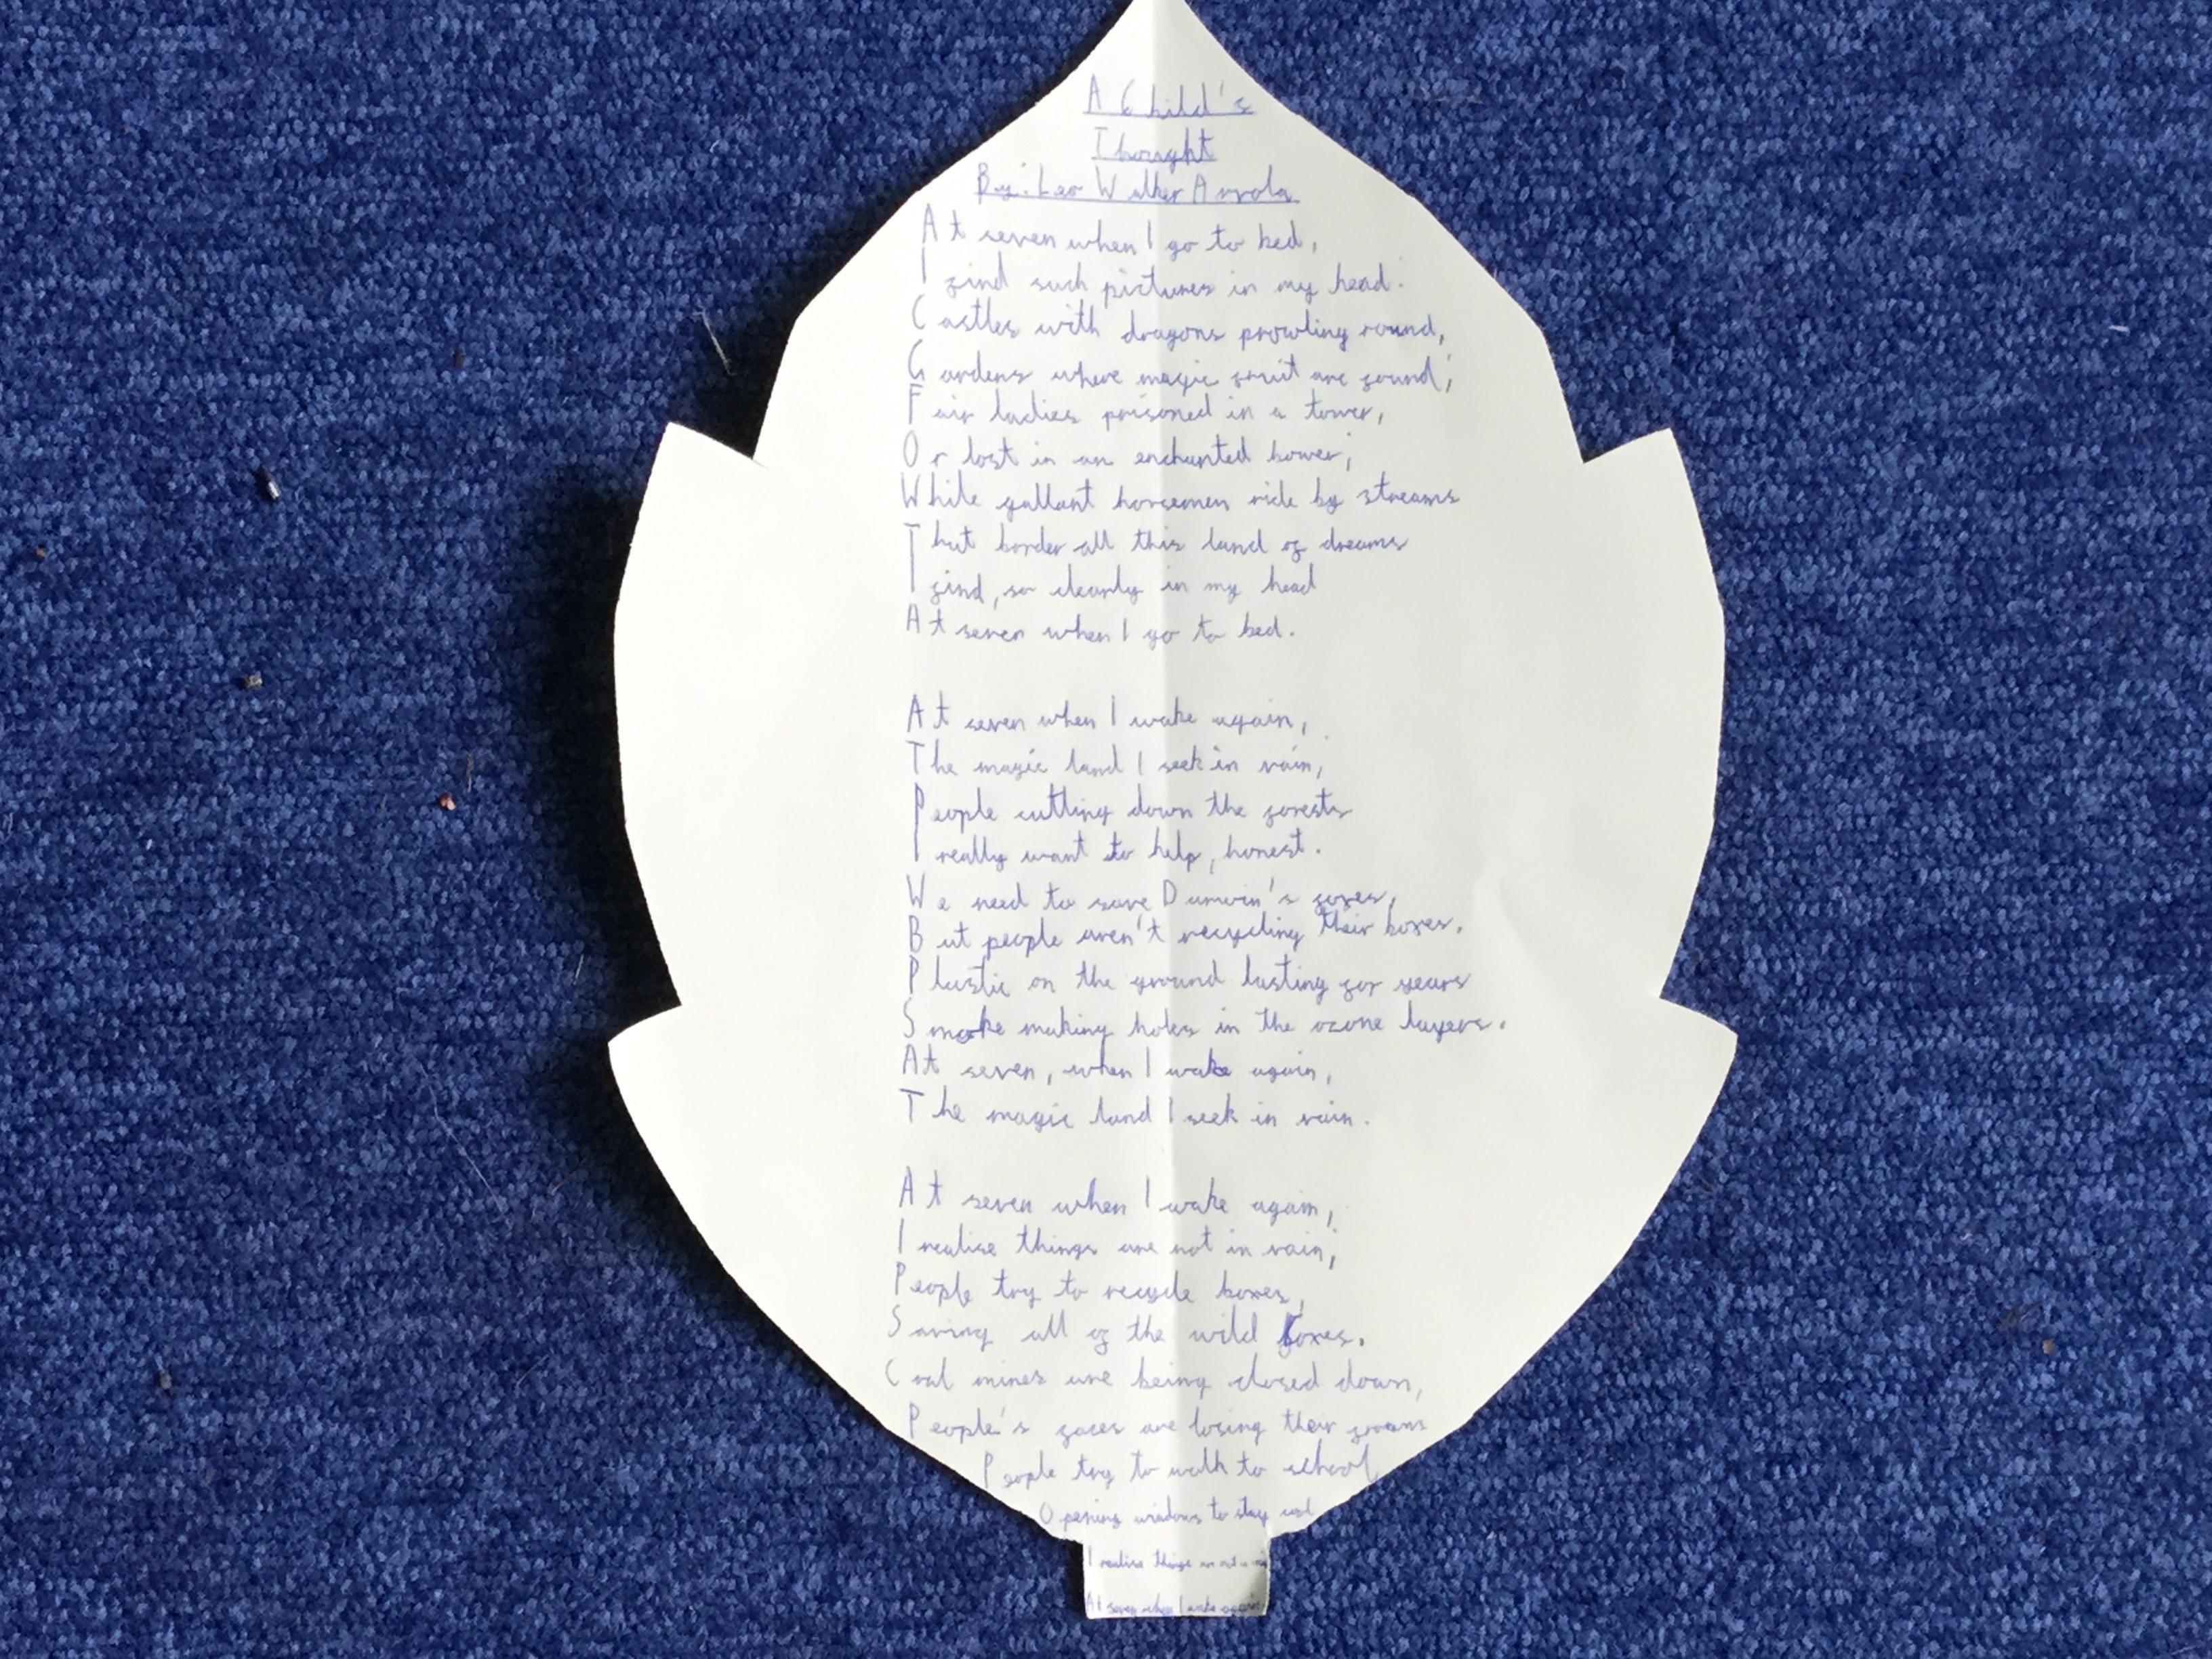 A Child's
Thought
By: Leo Walker Arrola
At seven when I go to bed,
I find such pictures in my head.
Castles with dragons prowling round,
Gardens where magic fruit are found;
Fair ladies prisoned in a tower,
Or lost in an enchanted bower;
While gallant horsemen ride by streams
That border all this land of dreams
I find, so clearly in my head
At seven when I go to bed.
At seven when I wake again,
The magic land I seek in vain,
People cutting down the forests
I really want to help, honest.
We need to save Darwin's foxes,
But people aren't recycling their boxes.
Plastic on the ground lasting for years
Smoke making holes in the ozone layers.
At seven, when I wake again,
The magic land I seek in vain.
At seven when I wake again,
I realise things are not in vain;
People try to recycle boxes,
Saving all of the wild foxes.
Coal mines are being closed down,
People's faces are losing their frowns
People try to walk to school
Opening windows to stay cool
I realise things are not in
At seven when I wake again